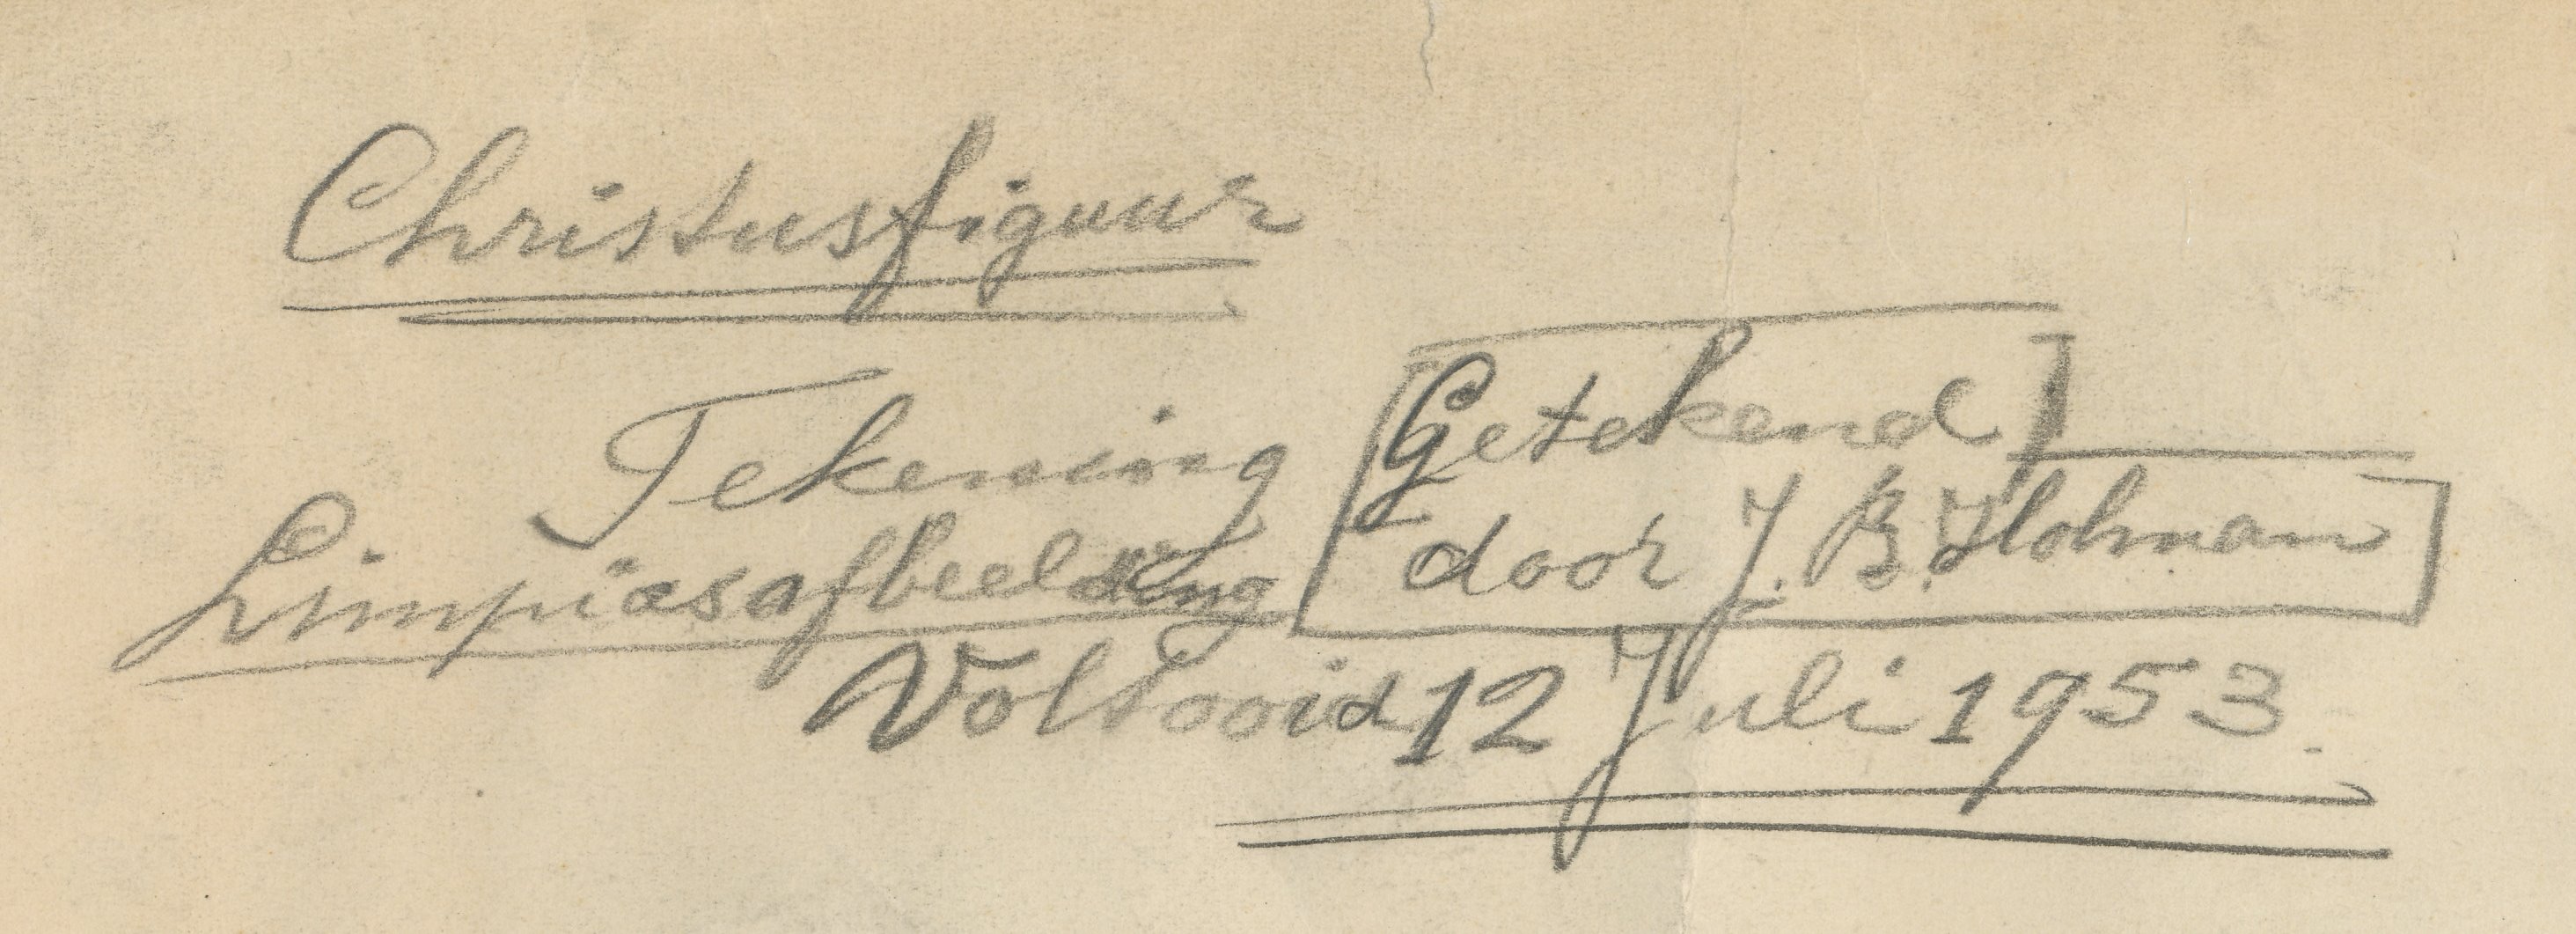 Christusfiguur
Tekening [Getekend]
Limpiasafbeelding door J. B. Holman]
Voltooid 12 Juli 1953.